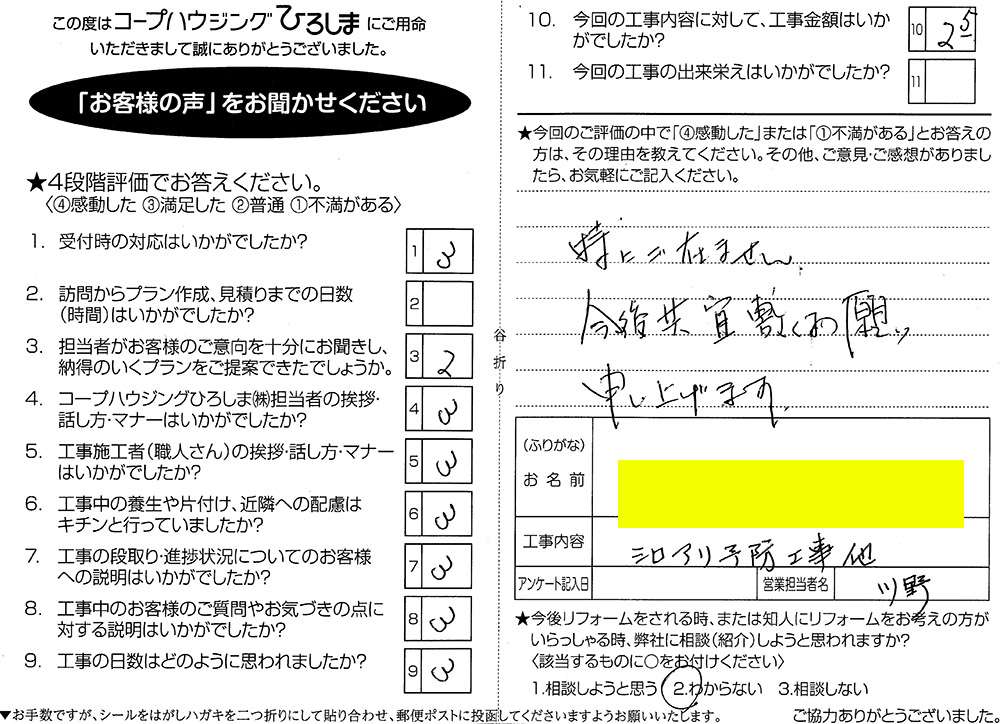 この度はコープハウジングひろしまにご用命
いただきまして誠にありがとうございました。
「お客様の声」をお聞かせください
★4段階評価でお答えください。
〈④感動した ③満足した ②普通 ①不満がある〉
1. 受付時の対応はいかがでしたか?
1 3
2. 訪問からプラン作成、見積りまでの日数
(時間)はいかがでしたか?
2
3. 担当者がお客様のご意向を十分にお聞きし、
納得のいくプランをご提案できたでしょうか。
3 2
4. コープハウジングひろしま㈱担当者の挨拶・
話し方・マナーはいかがでしたか?
4 3
5. 工事施工者(職人さん)の挨拶・話し方・マナー
はいかがでしたか?
5 3
6. 工事中の養生や片付け、近隣への配慮は
キチンと行っていましたか?
6 3
7. 工事の段取り・進捗状況についてのお客様
への説明はいかがでしたか?
7 3
8. 工事中のお客様のご質問やお気づきの点に
対する説明はいかがでしたか?
8 3
9. 工事の日数はどのように思われましたか?
9 3
▼お手数ですが、シールをはがしハガキを二つ折りにして貼り合わせ、郵便ポストに投函してくださいますようお願いいたします。
谷折り
10. 今回の工事内容に対して、工事金額はいか
がでしたか?
10 2.5
11. 今回の工事の出来栄えはいかがでしたか?
11
★今回のご評価の中で「④感動した」または「①不満がある」とお答えの
方は、その理由を教えてください。その他、ご意見・ご感想がありまし
たら、お気軽にご記入ください。
特にご在ません。
今後共宜敷くお願い
申し上げます。
(ふりがな)
お名前
工事内容 シロアリ予防工事他
アンケート記入日 営業担当者名 ツ野
★今後リフォームをされる時、または知人にリフォームをお考えの方が
いらっしゃる時、弊社に相談(紹介)しようと思われますか?
〈該当するものに○をお付けください〉
1.相談しようと思う 2.わからない 3.相談しない
ご協力ありがとうございました。